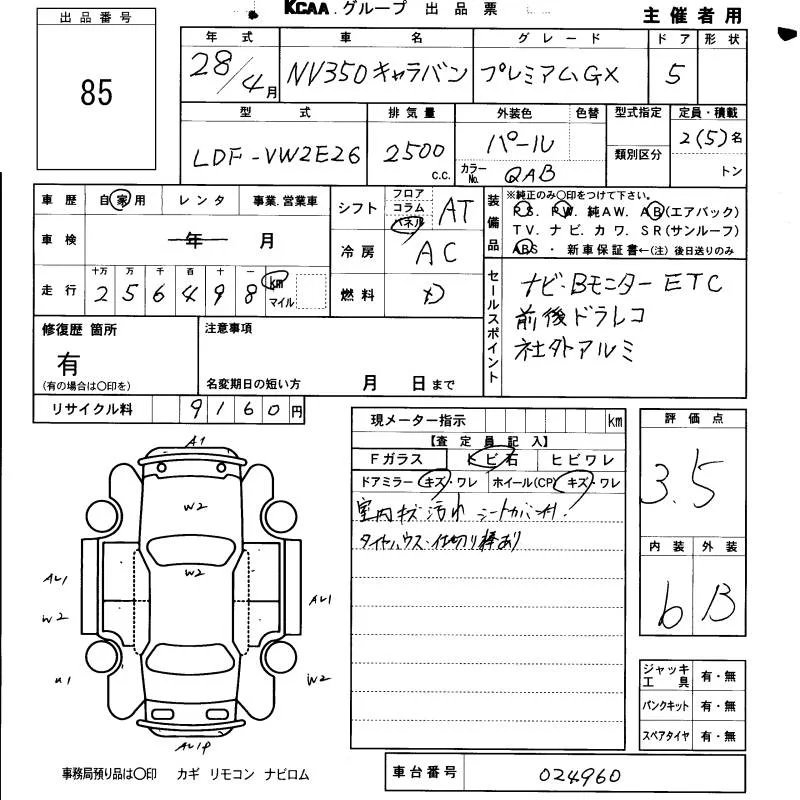 KCAA グループ 出品票
主催者用
出品番号
85
年式 車名 グレード ドア 形状
28/4月 NV350キャラバン プレミアムGX 5
型式 排気量 外装色 色替 型式指定 定員・積載
LDF-VW2E26 2500c.c. パール 類別区分 2(5)名
カラーNo. QAB トン
車歴 自家用 レンタ 事業.営業車
車検 年 月
走行 十万 万 千 百 十 一
256498 km マイル
シフト フロア コラム パネル AT
冷房 AC
燃料
装備品 ※純正のみ○印をつけて下さい。
PS. PW. 純AW. AB(エアバック)
TV. ナビ. カワ. SR(サンルーフ)
ABS ・ 新車保証書←(注) 後日送りのみ
セールスポイント
ナビ・Bモニター ETC
前後ドラレコ
社外アルミ
修復歴 箇所
有
(有の場合は○印を)
注意事項
名変期日の短い方 月 日まで
リサイクル料 9160円
現メーター指示 km
【査定員記入】
Fガラス トビ石 ヒビワレ
ドアミラー キズ・ワレ ホイール(CP) キズ・ワレ
室内キズ・汚れ シートカバー付.
タイヤハウス・仕切り棒あり
評価点
3.5
内装 外装
b B
ジャッキ工具 有・無
パンクキット 有・無
スペアタイヤ 有・無
A1
W2
W2
AL1
W2
U1
AL1
W2
事務局預り品は○印 カギ リモコン ナビロム
車台番号 024960